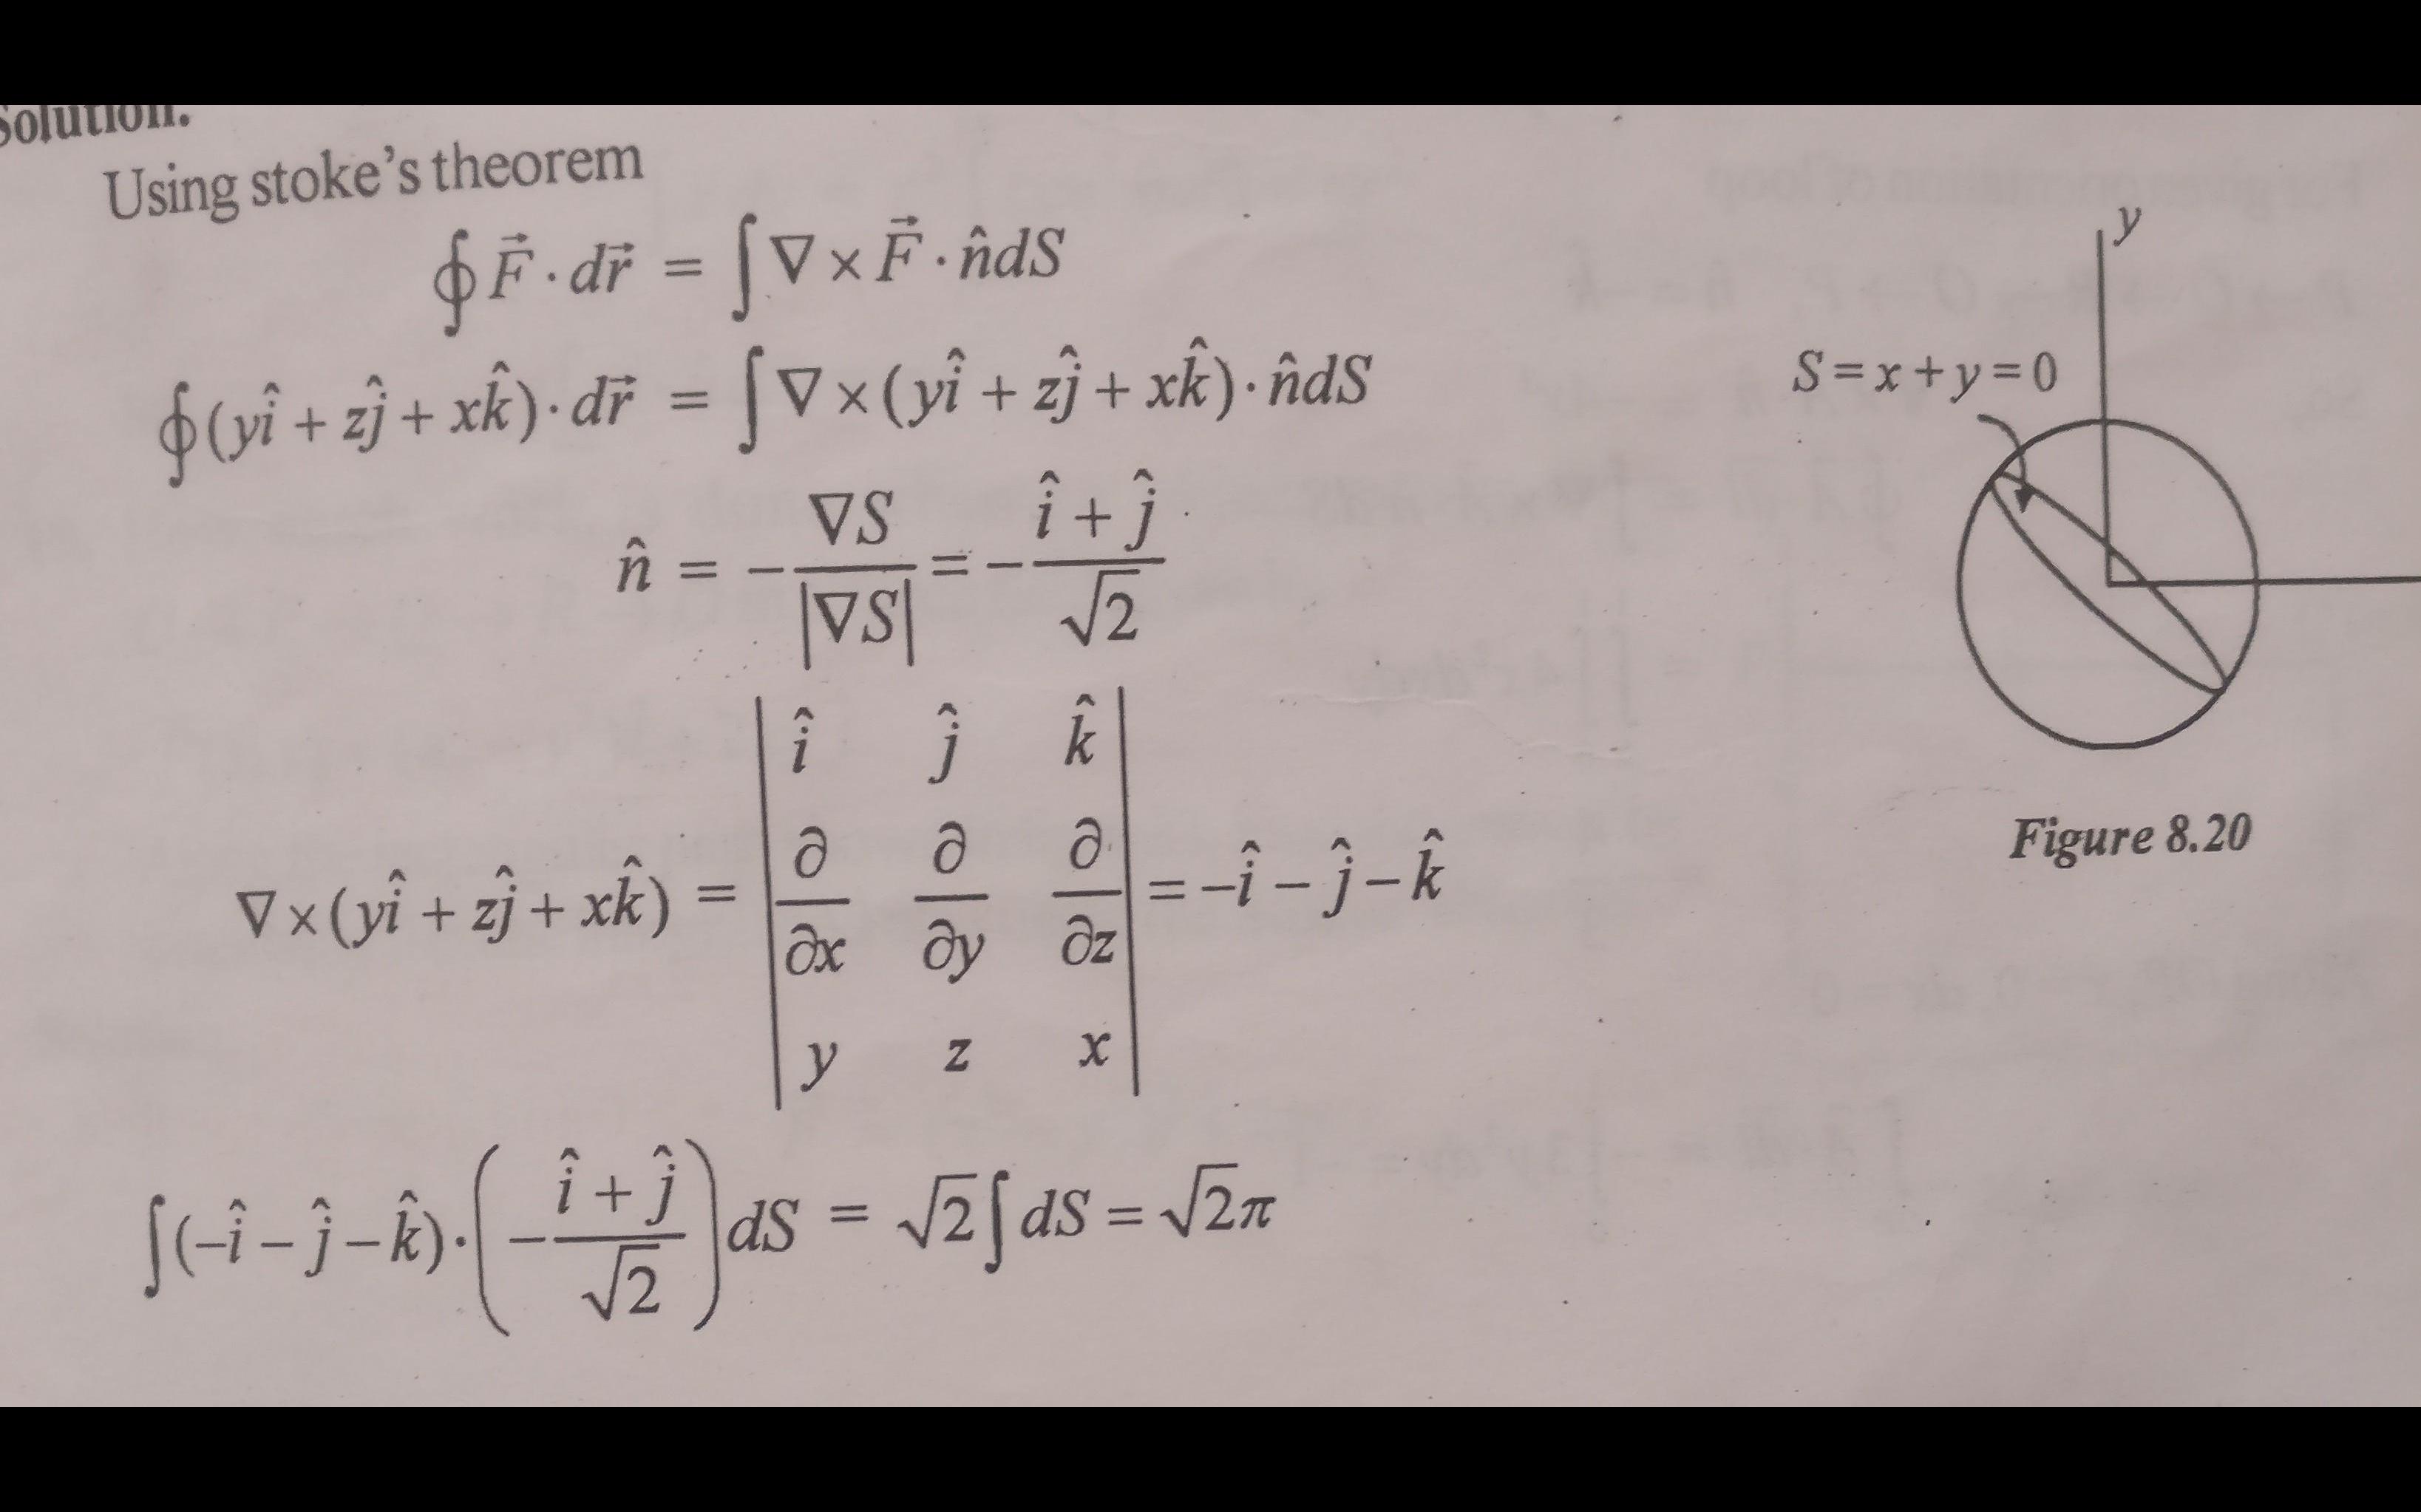 Solution.
Using stoke's theorem
∮ F⃗ · dr⃗ = ∫ ∇ × F⃗ · n̂dS
∮(yî + zĵ + xk̂) · dr⃗ = ∫ ∇ × (yî + zĵ + xk̂) · n̂dS
n̂ = − ∇S / |∇S| = − (î + ĵ) / √2
∇ × (yî + zĵ + xk̂) = | î ĵ k̂ |
| ∂/∂x ∂/∂y ∂/∂z | = −î − ĵ − k̂
| y z x |
∫(−î − ĵ − k̂) · (− (î + ĵ) / √2) dS = √2 ∫ dS = √2π
y
S = x + y = 0
Figure 8.20